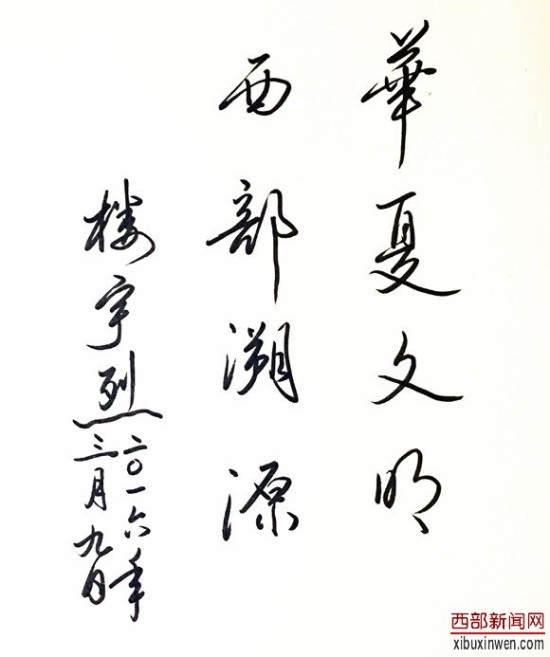 華夏文明
西部溯源
楼宇烈
二〇一六年
三月九日
西部新闻网
xibuxinwen.com